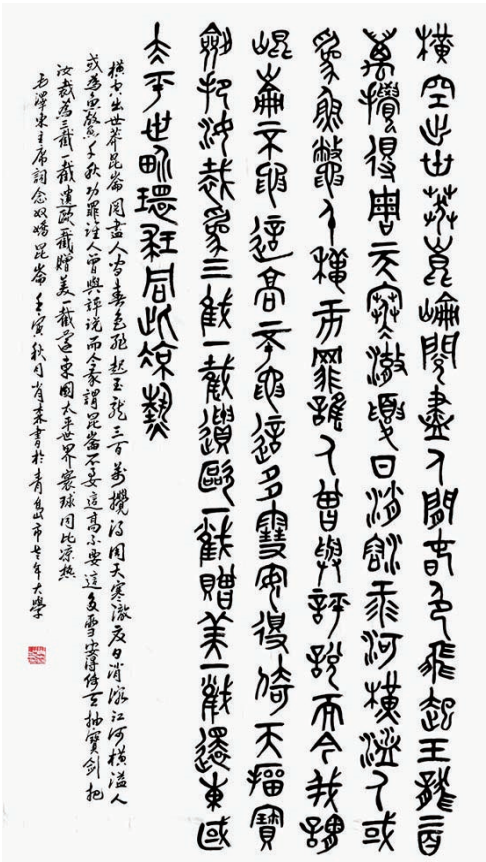 橫空出世莽崑崙閱盡人間春色飛起玉龍三百
萬攪得周天寒澈夏日消溶江河橫溢人或
為魚鱉千秋功罪誰人曾與評說而今我謂
崐崙不要這高不要這多雪安得倚天抽寶
劍把汝裁為三截一截遺歐一截贈美一截還東國
太平世界環球同此凉熱
橫空出世莽昆崙閱盡人間春色飛起玉龍三百萬攪得周天寒澈夏日消溶江河橫溢人
或為魚鱉千秋功罪誰人曾與評说而今我謂昆崙不要這高不要這多雪安得倚天抽寶劍把
汝裁為三截一截遺歐一截贈美一截還東國太平世界寰球同此凉熱
毛澤東主席詞念奴嬌昆崙壬寅秋月肖書於青島市老年大學